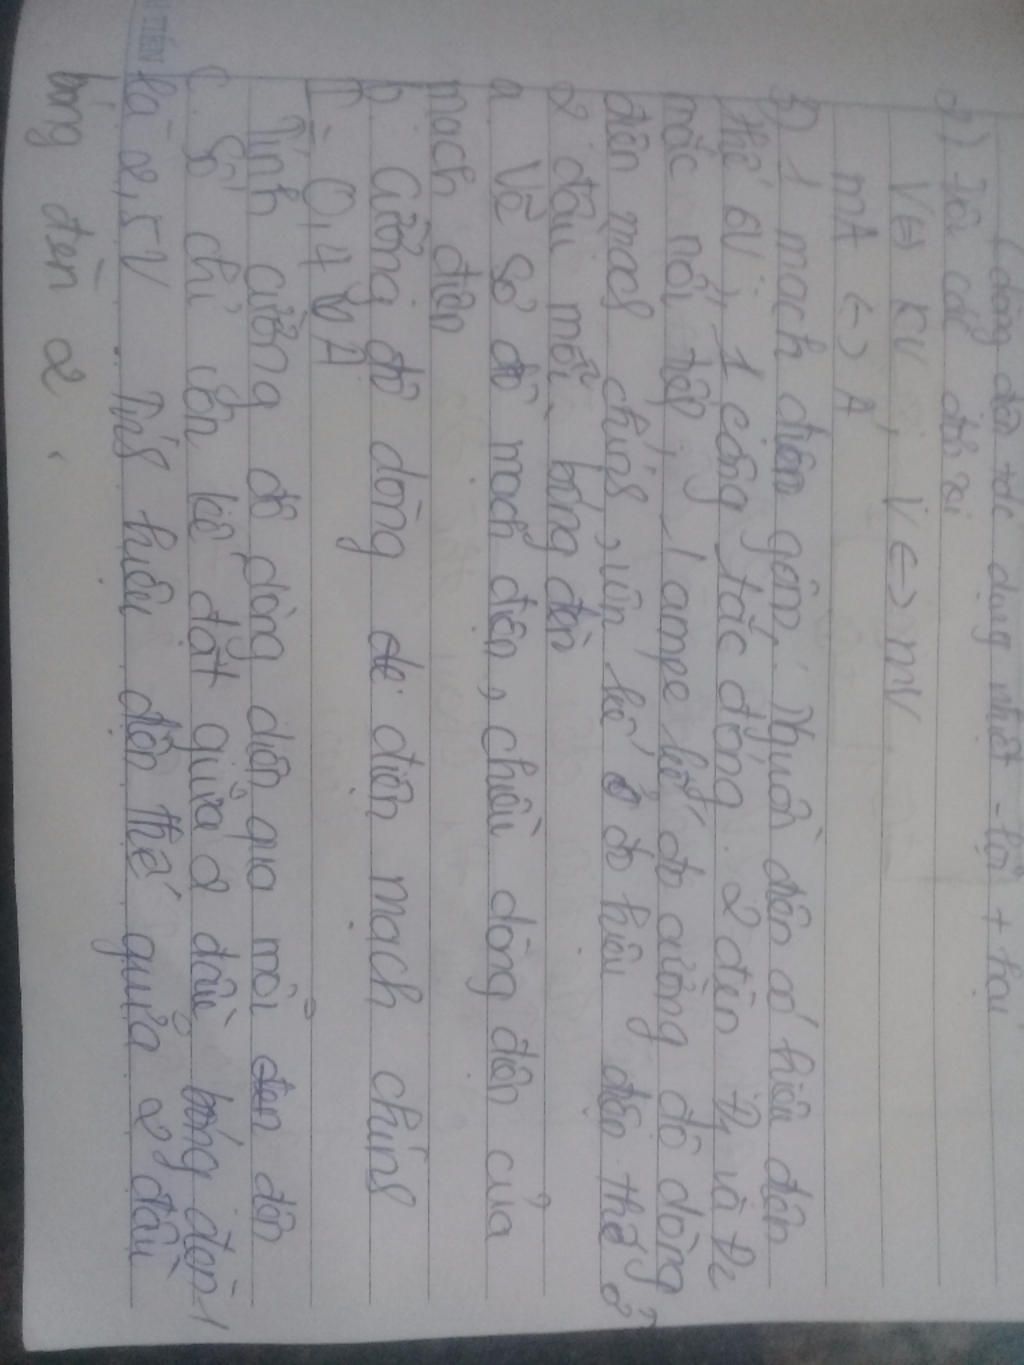 (dòng dân tộc dụng nhiệt - lợi + hại
2) Tồi các đổi xi
V ⇔ KV ; V ↔ mV
mA ↔ A
3) 1 mạch điện gồm: Nguồn điện có hiệu điện
thế 6V; 1 công tắc đóng. 2 đèn Đ1 và Đ2
mắc nối tiếp, 1 ampe kế đo cường độ dòng
điện mạch chính, vôn kế đo hiệu điện thế ở
2 đầu mỗi bóng đèn
a Vẽ sơ đồ mạch điện, chiều dòng điện của
mạch điện
b Cường độ dòng điện mạch chính
I = 0,4 A
Tính cường độ dòng điện qua mỗi đèn
c. Số chỉ vôn kế đặt giữa 2 đầu bóng đèn 1
là 2,5V. Tính hiệu điện thế giữa 2 đầu
bóng đèn 2.
TIẾN